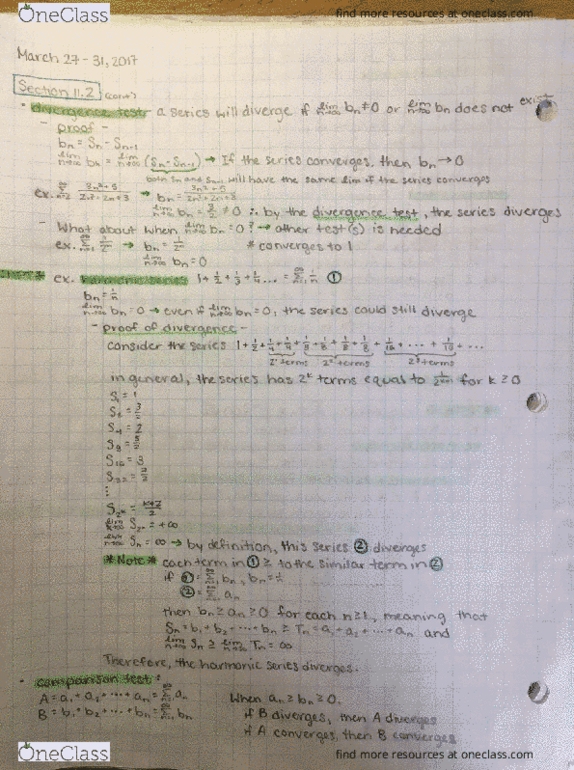 OneClass
find more resources at oneclass.com
March 27-31, 2017
Section 11.2 (cont)
· divergence test: a series will diverge if lim n→∞ bn ≠ 0 or lim n→∞ bn does not exist
- proof -
bn = Sn - Sn-1
lim n→∞ bn = lim n→∞ (Sn - Sn-1) → If the series converges, then bn → 0
both Sn and Sn-1 will have the same lim if the series converges
ex. → bn =
lim n→∞ bn = ≠ 0 ∴ by the divergence test, the series diverges
- What about when lim n→∞ bn = 0? → other test(s) is needed
ex. → bn = * converges to 1
lim n→∞ bn = 0
ex. harmonic series 1 + 1/2 + 1/3 + 1/4 ... = ∑ 1/n ①
bn = 1/n
lim n→∞ bn = 0 → even if lim n→∞ bn = 0, the series could still diverge
- proof of divergence -
consider the series 1 + 1/2 + 1/4 + 1/4 + 1/8 + 1/8 + 1/8 + 1/8 + 1/16 + ... + 1/16 + ...
2¹ terms 2² terms 2³ terms
in general, the series has 2^k terms equal to for k ≥ 0
S1 = 1
S2 = 3/2
S4 = 2
S8 = 5/2
S16 = 3
S32 = 7/2
⋮
S2^k = k+2/2
= +∞
lim n→∞ Sn = ∞ → by definition, this series ② diverges
*Note* each term in ① ≥ to the similar term in ②
if ① = ∑ bn, bn = 1/n
② = ∑ an
then bn ≥ an ≥ 0 for each n ≥ 1, meaning that
Sn = b1 + b2 + ... + bn ≥ Tn = a1 + a2 + ... + an and
lim n→∞ Sn ≥ lim n→∞ Tn = ∞
Therefore, the harmonic series diverges.
· comparison test:
A = a1 + a2 + ... + an = ∑ an When an ≥ bn ≥ 0,
B = b1 + b2 + ... + bn = ∑ bn if B diverges, then A diverges
if A converges, then B converges
OneClass
find more resources at oneclass.com